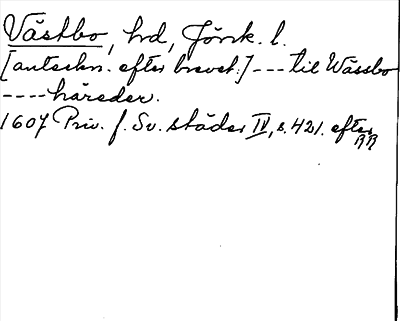 Västbo, hd, Jönk. l.
[anteckn. efter brevet:] --- til Wässbo
---- häreder.
1607 Priv. f. Sv. städer IV, s. 421. efter
RR